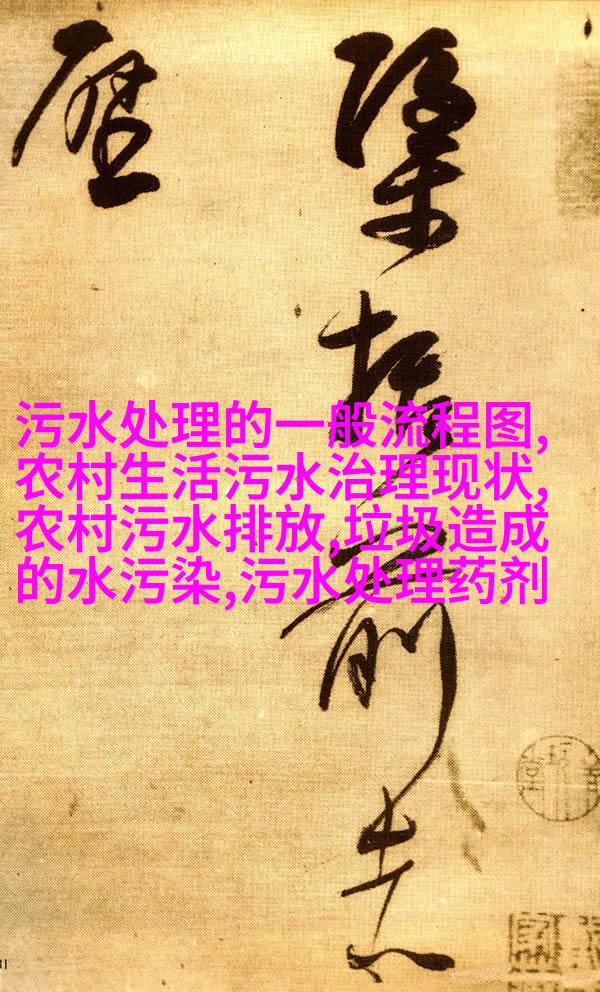 前
污水处理的一般流程图,
农村生活污水治理现状,
农村污水排放,垃圾造成
的水污染,污水处理药剂